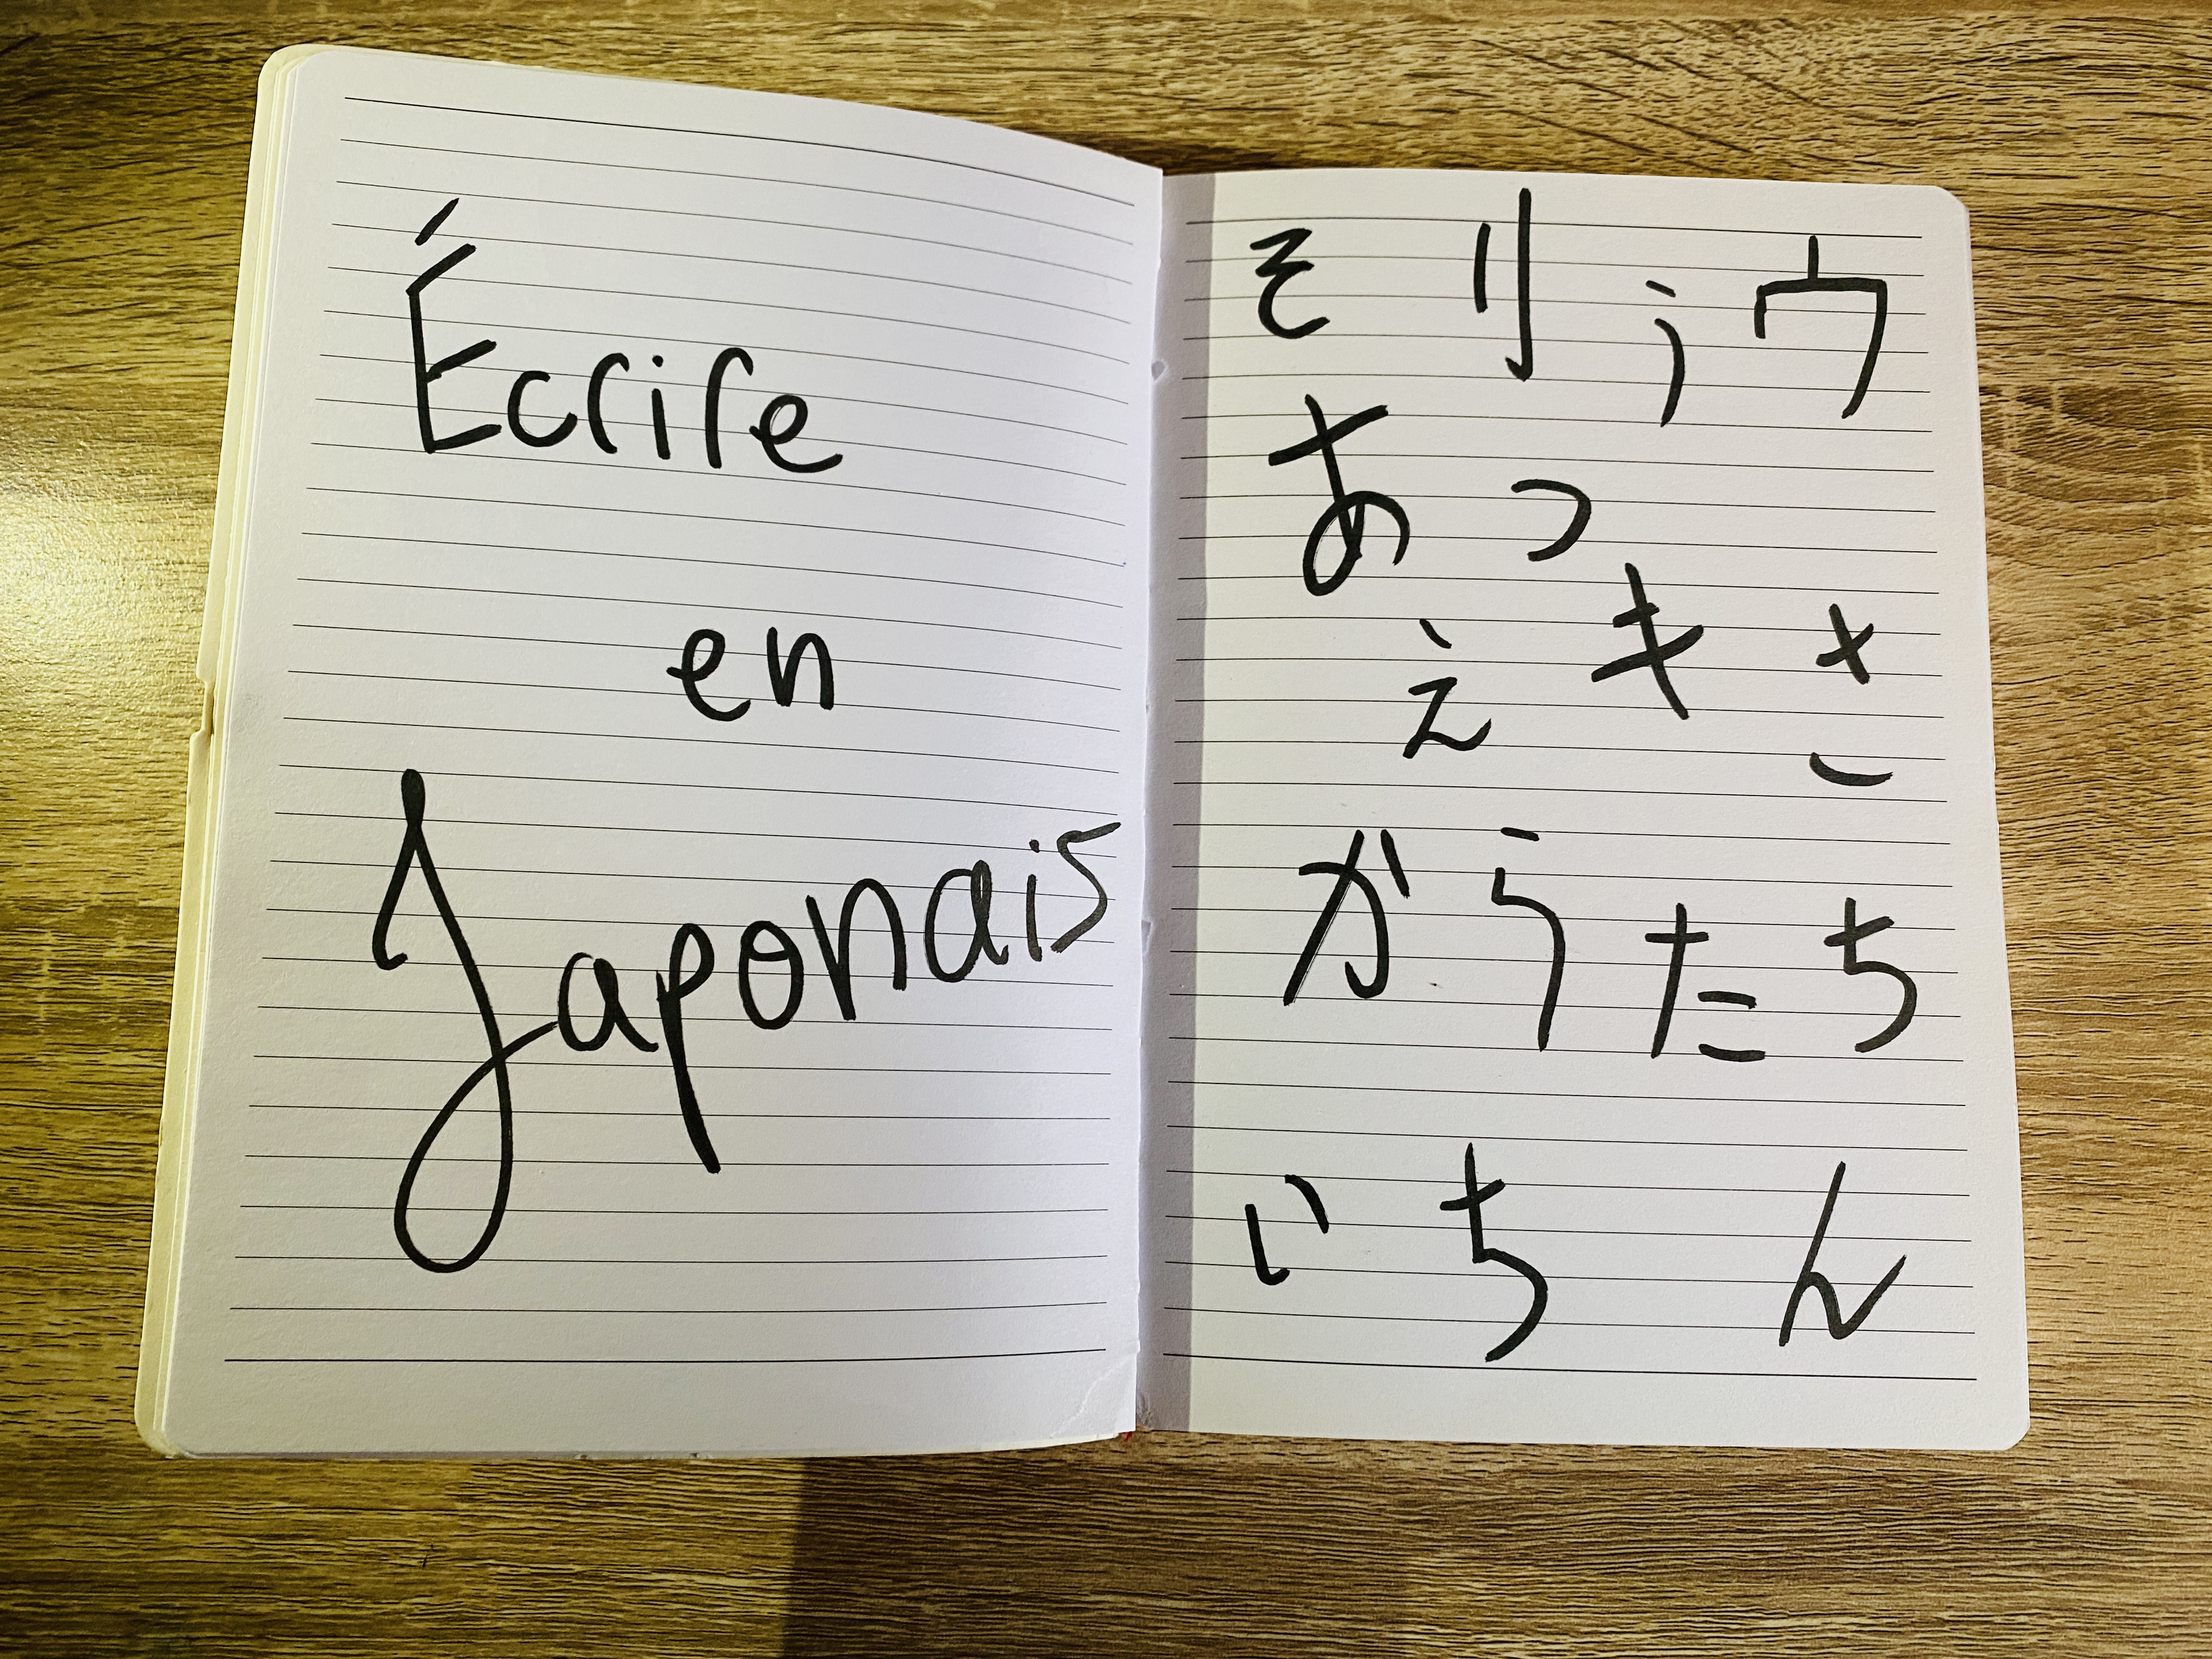 Écrire
en
Japonais
そ リ う ウ
あ っ
え キ さ
が ら た ち
い ち ん